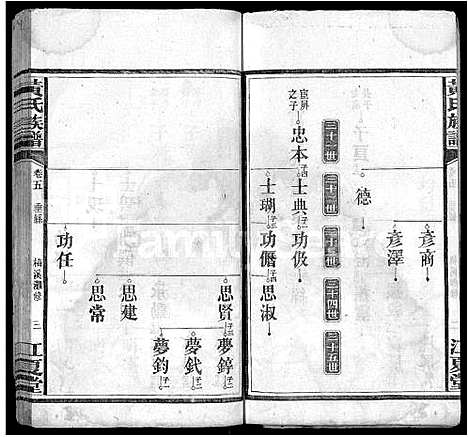 黃氏族譜
彥商
彥澤
德
三十一世
三十二世
三十三世
三十四世
三十五世
宸屏之子
忠本
士典
功伋
士瑚
功僭
思淑
江夏堂
思賢
夢錞
夢釴
思建
夢鈞
思常
功任
黃氏族譜
卷五
垂絲
三
江夏堂